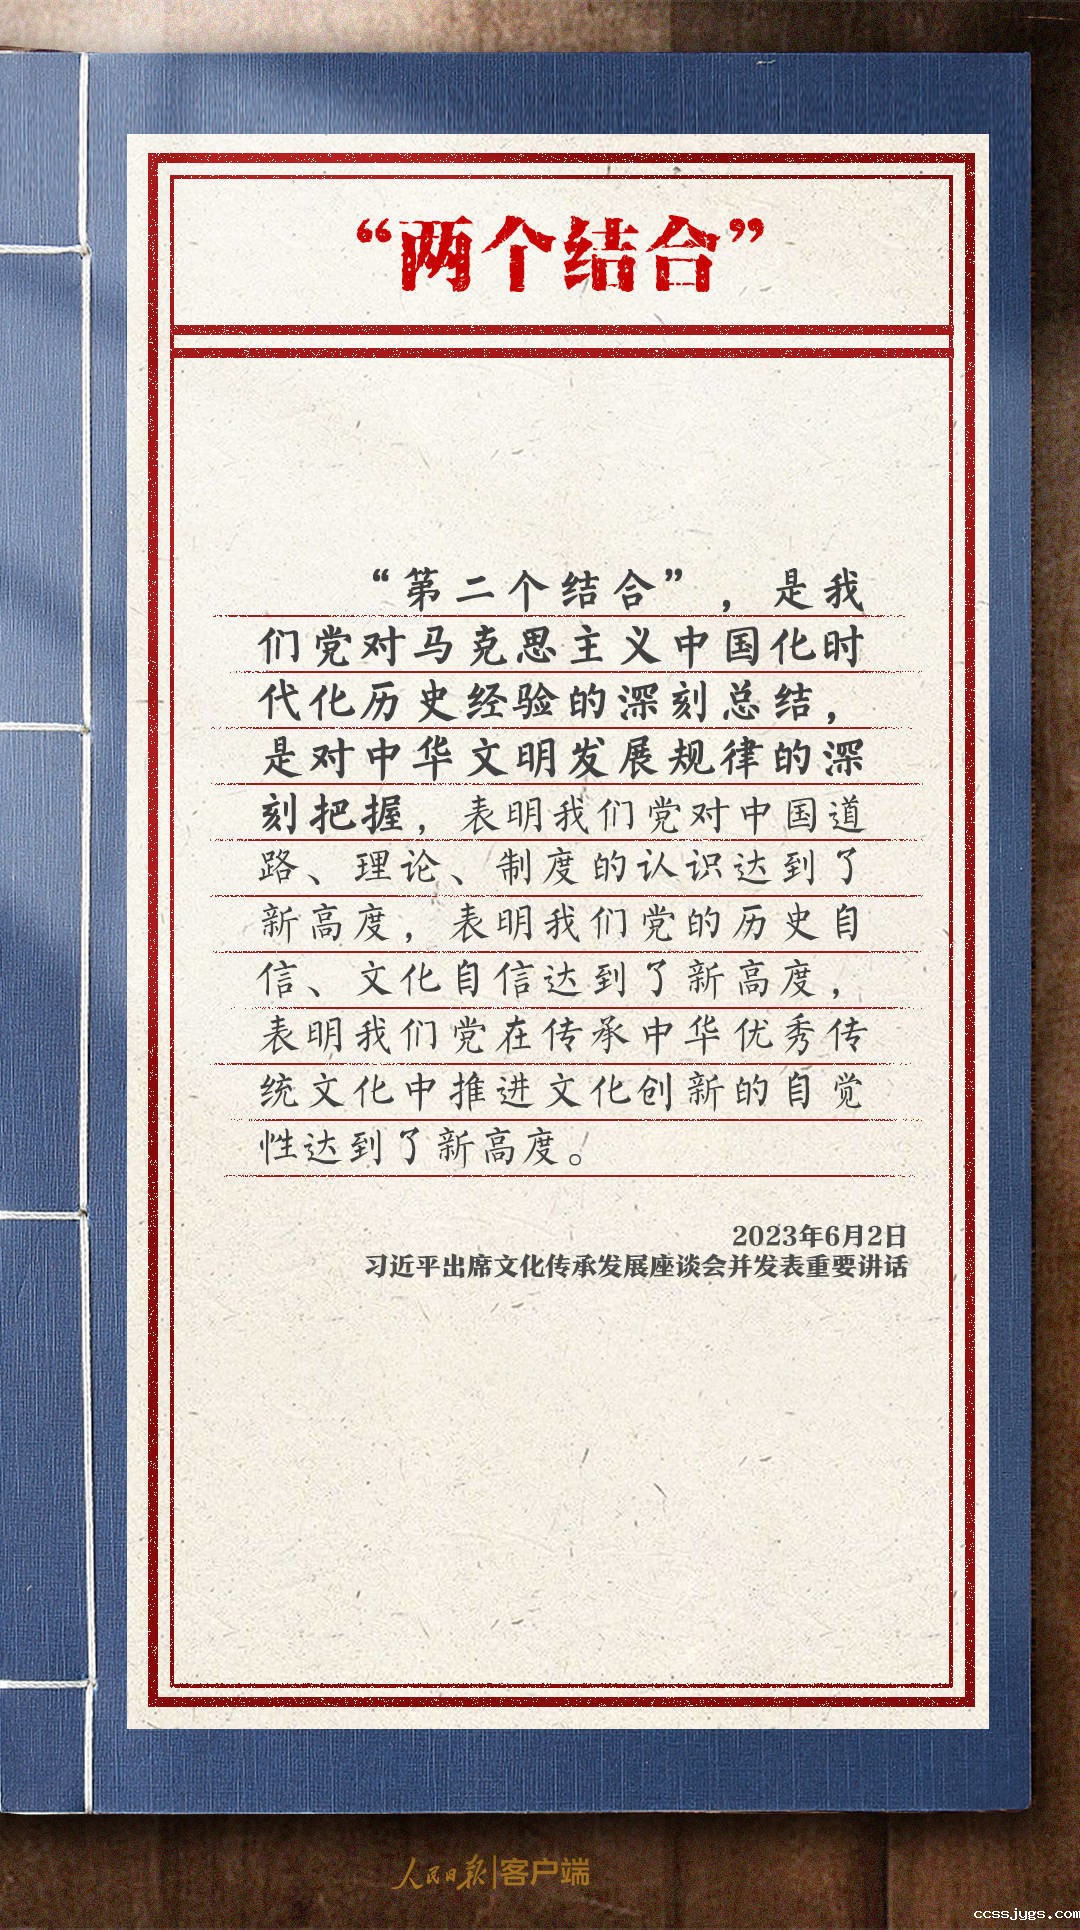 “两个结合”
“第二个结合”，是我
们党对马克思主义中国化时
代化历史经验的深刻总结，
是对中华文明发展规律的深
刻把握，表明我们党对中国道
路、理论、制度的认识达到了
新高度，表明我们党的历史自
信、文化自信达到了新高度，
表明我们党在传承中华优秀传
统文化中推进文化创新的自觉
性达到了新高度。
2023年6月2日
习近平出席文化传承发展座谈会并发表重要讲话
人民日报|客户端
ccssjygs.com